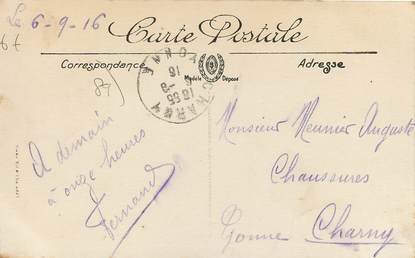 Le 6-9-16
Carte Postale
Correspondance
Adresse
Modèle Déposé
CHARNY YONNE
18 55
6 - 9
16
67
89
A demain
à onze heures
Fernand
Monsieur Meunier Auguste
Chaussures
Yonne Charny